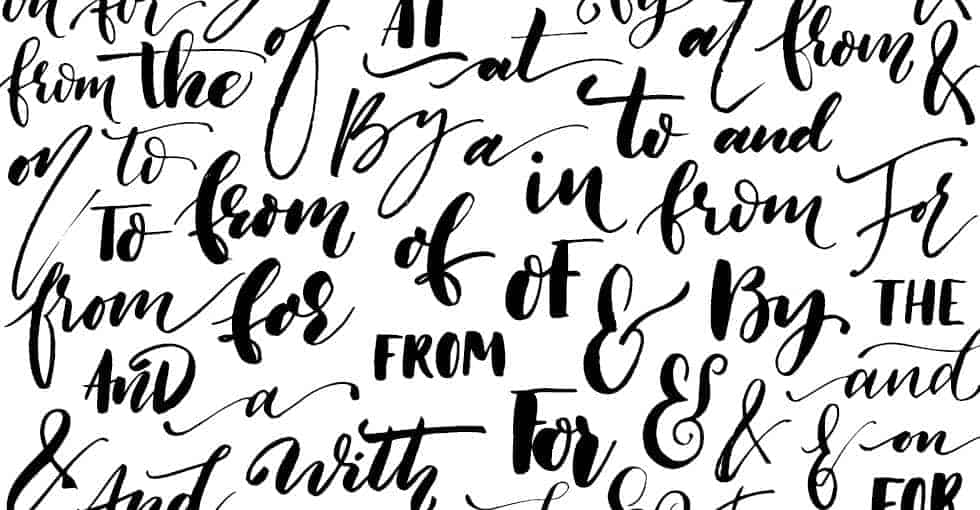 on for of AT at By at from &
from the
on to By a to and
To from in from For
of OF
from for & By THE
AND FROM and
a For & & & on
& And With FOR